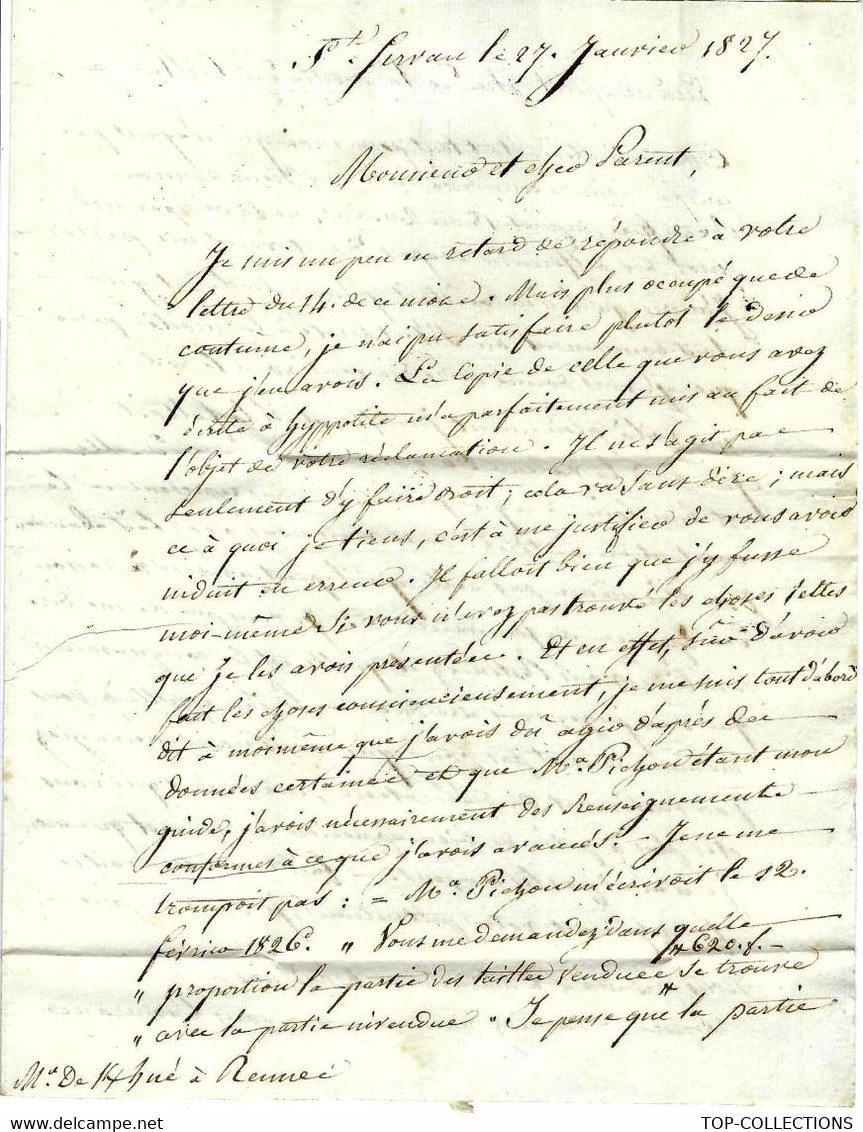 St. Servan le 27. Janvier 1827.
Monsieur et cher Parent,
Je suis un peu en retard de répondre à votre
lettre du 14. de ce mois. Mais plus occupé que de
coutûme, je n'ai pu satisfaire plutot le desir
que j'en avois. La Copie de celle que vous avez
écrite à hyppolite m'a parfaitement mis au fait de
l'objet de votre réclamation. Il ne s'agit pas
seulement d'y faire droit; cela va sans dire; mais
ce à quoi je tiens, c'est à me justifier de vous avoir
induit en erreur. Il falloit bien que j'y fusse
moi-même si vous n'avez pas trouvé les choses telles
que je les avois présentées. Et en effet, sûr d'avoir
fait les choses consciencieusement, je me suis tout d'abord
dit à moi même que j'avois dû agir d'après des
données certaines et que Mr. Pichon étant mon
guide, j'avois nécessairement des Renseignements
conformes à ce que j'avois avancés. – Je ne me
trompoit pas : = Mr. Pichon m'écrivoit le 12.
février 1826. " Vous me demandez dans quelle
620. f. –
" proportion la partie des taillées vendues se trouve
" avec la partie invendue " Je pense que la partie
Mr. De Khué à Rennes
TOP-COLLECTIONS